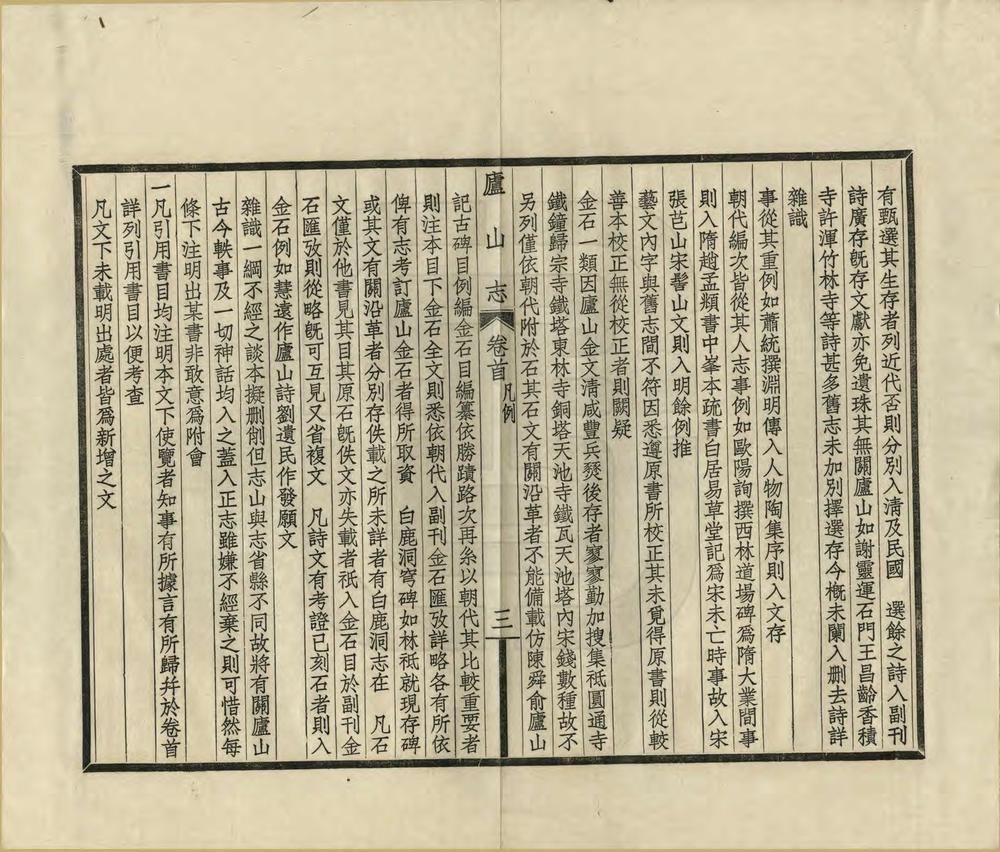 有甄選其生存者列近代否則分別入清及民國　選餘之詩入副刊
詩廣存旣存文獻亦免遺珠其無關廬山如謝靈運石門王昌齡香積
寺許渾竹林寺等詩甚多舊志未加別擇選存今槪未闌入刪去詩詳
雜識
事從其重例如蕭統撰淵明傳入人物陶集序則入文存
朝代編次皆從其人志事例如歐陽詢撰西林道場碑爲隋大業間事
則入隋趙孟頫書中峯本疏書白居易草堂記爲宋未亡時事故入宋
張芑山宋髻山文則入明餘例推
藝文內字與舊志間不符因悉遵原書所校正其未覓得原書則從較
善本校正無從校正者則闕疑
金石一類因廬山金文清咸豐兵燹後存者寥寥勤加搜集祗圓通寺
鐵鐘歸宗寺鐵塔東林寺銅塔天池寺鐵瓦天池塔內宋錢數種故不
另列僅依朝代附於石其石文有關沿革者不能備載仿陳舜俞廬山
廬山志　卷首　凡例　三
記古碑目例編金石目編纂依勝蹟路次再糸以朝代其比較重要者
則注本目下金石全文則悉依朝代入副刊金石匯攷詳略各有所依
俾有志考訂廬山金石者得所取資　白鹿洞穹碑如林祗就現存碑
或其文有關沿革者分別存佚載之所未詳者有白鹿洞志在　凡石
文僅於他書見其目其原石旣佚文亦失載者祇入金石目於副刊金
石匯攷則從略旣可互見又省複文　凡詩文有考證已刻石者則入
金石例如慧遠作廬山詩劉遺民作發願文
雜識一綱不經之談本擬刪削但志山與志省縣不同故將有關廬山
古今軼事及一切神話均入之蓋入正志雖嫌不經棄之則可惜然每
條下注明出某書非敢意爲附會
一凡引用書目均注明本文下使覽者知事有所據言有所歸幷於卷首
詳列引用書目以便考查
凡文下未載明出處者皆爲新增之文